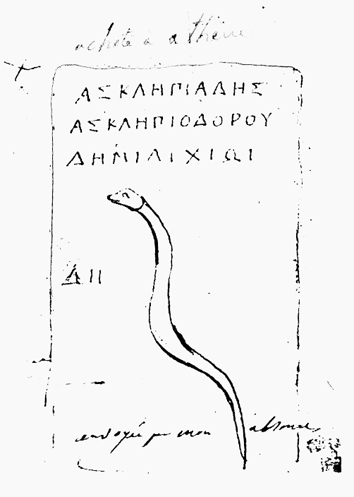 acheté à athène
ΑΣΚΛΗΠΙΑΔΗΣ
ΑΣΚΛΗΠΙΟΔΩΡΟΥ
ΔΗΜΙΛΙΧΙΩΙ
ΔΙΙ
envoyée par mon absence